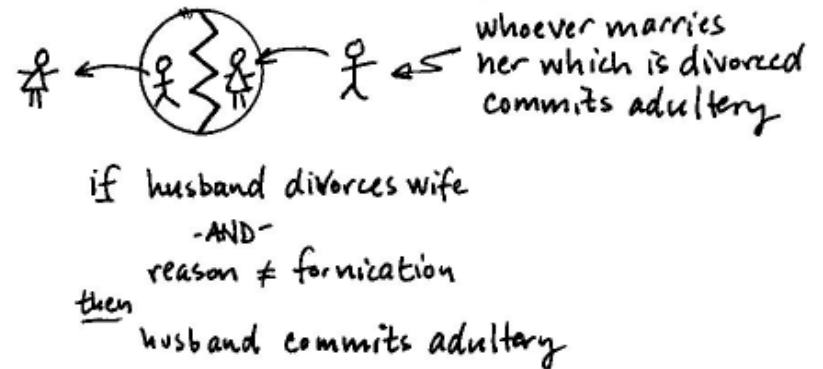 whoever marries
her which is divorced
commits adultery
if husband divorces wife
-AND-
reason ≠ fornication
then
husband commits adultery